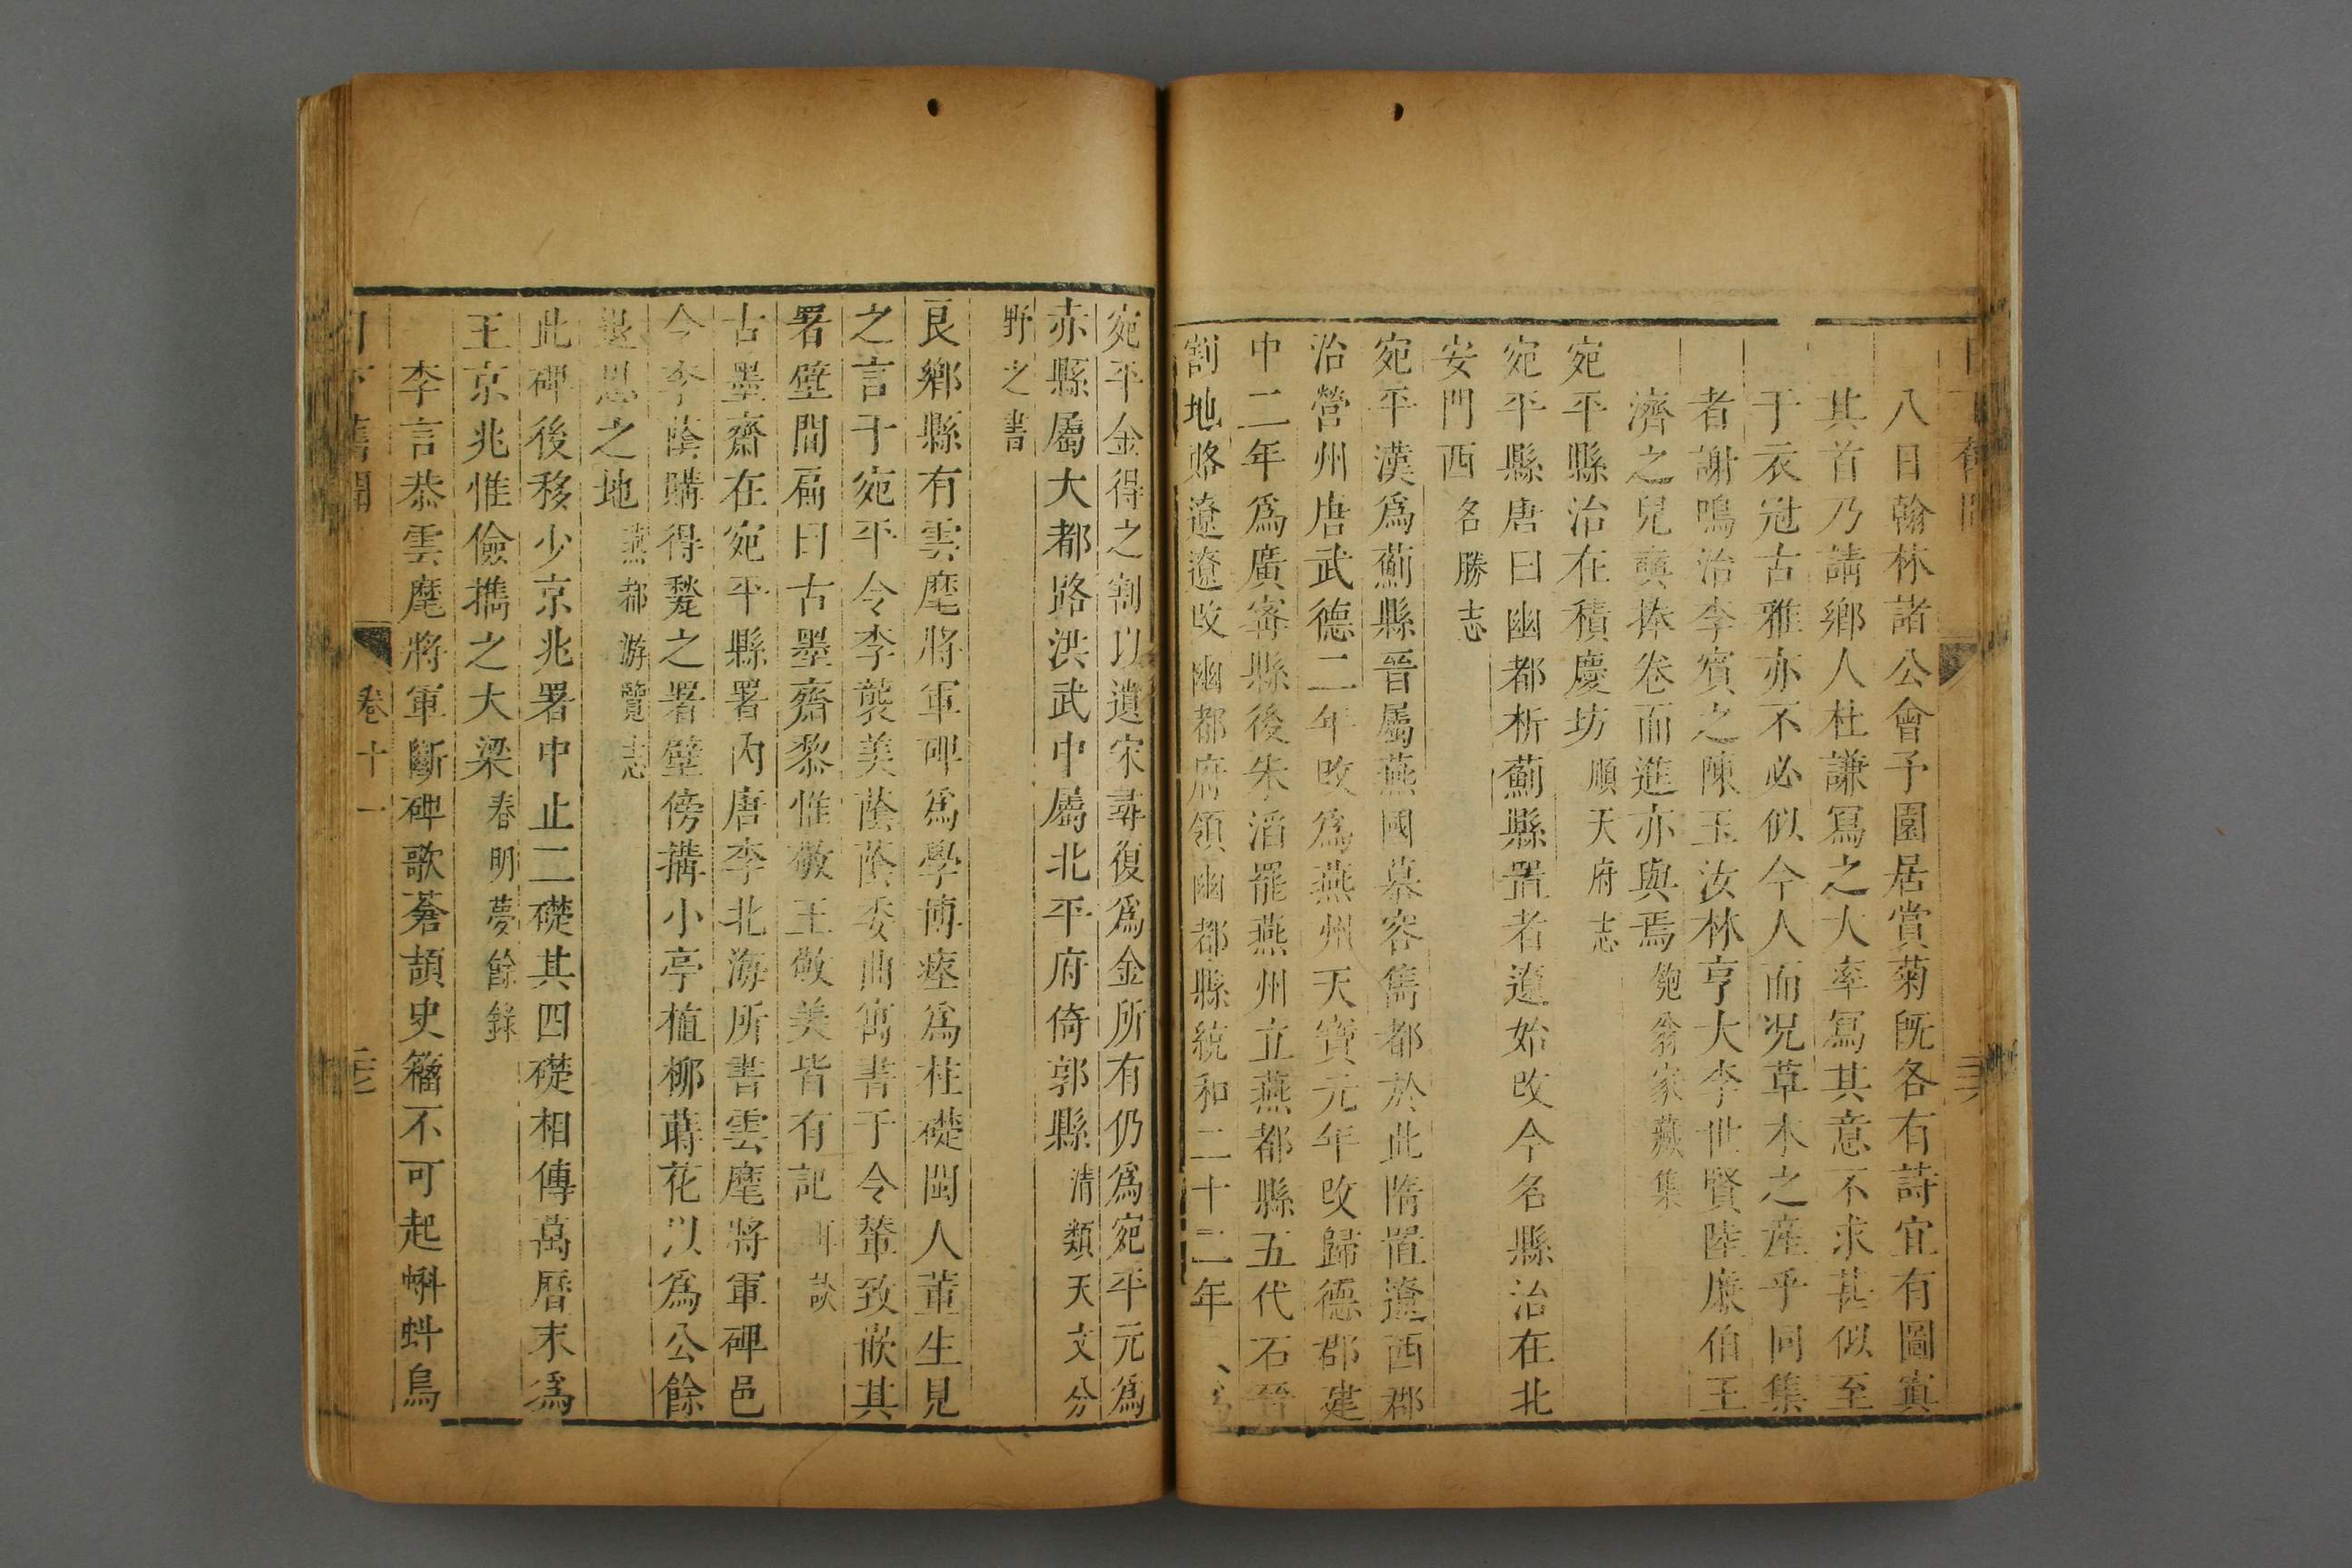 八日翰林諸公會予園居賞菊旣各有詩宜有圖寘
其首乃請鄉人杜謙寫之大率寫其意不求甚似至
于衣冠古雅亦不必似今人而况草木之産乎同集
者謝鳴治李賓之陳玉汝林亨大李世賢陸廉伯王
濟之兒奭捧卷而進亦與焉 匏翁家藏集
宛平縣治在積慶坊 順天府志
宛平縣唐曰幽都析薊縣置者遼始改今名縣治在北
安門西 名勝志
宛平漢爲薊縣晉屬燕國慕容雋都於此隋置遼西郡
治營州唐武德二年改爲燕州天寶元年改歸德郡建
中二年爲廣寗縣後朱滔罷燕州立燕都縣五代石晉
割地賂遼遼改幽都府領幽都縣統和二十二年
宛平金得之割以遺宋尋復爲金所有仍爲宛平元爲
赤縣屬大都路洪武中屬北平府倚郭縣 清類天文分
野之書
良鄉縣有雲麾將軍碑爲學博瘞爲柱礎閩人董生見
之言于宛平令李襲美蔭蔭委曲寓書于令輦致嵌其
署壁間扁曰古墨齋黎惟敬王敬美皆有記 耳談
古墨齋在宛平縣署內唐李北海所書雲麾將軍碑邑
令李蔭購得甃之署壁傍搆小亭植柳蒔花以爲公餘
退思之地 燕都游覽志
此碑後移少京兆署中止二礎其四礎相傳萬曆末爲
王京兆惟儉擕之大梁 春明夢餘錄
李言恭雲麾將軍斷碑歌蒼頡史籀不可起蝌蚪鳥
日下舊聞 卷十一